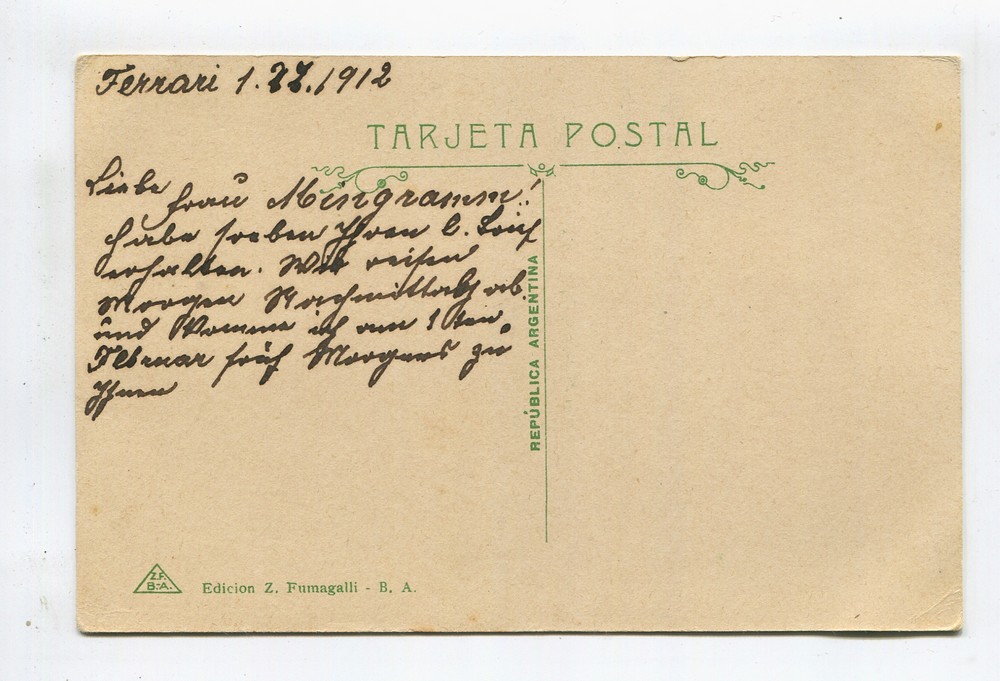 Ferrari 1.27./1912
TARJETA POSTAL
Liebe Frau Mingramm!
habe soeben Ihren l. Brief
erhalten. Wir reisen
Morgen Nachmittag ab
und komme ich am 1ten
Februar früh Morgens zu
Ihnen
REPÚBLICA ARGENTINA
Z.F.
B.-A.
Edicion Z. Fumagalli - B. A.